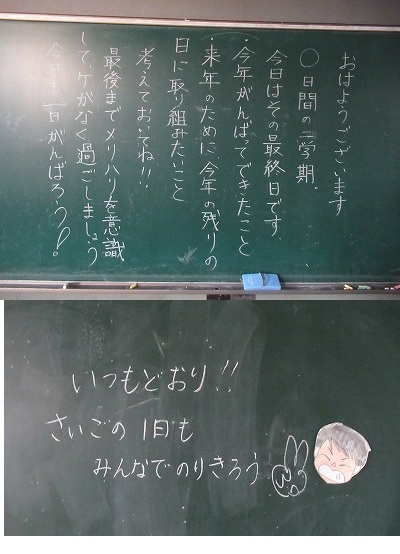 おはようございます
○日間の二学期.
今日はその最終日です.
・今年がんばってできたこと
・来年のために今年の残りの
日に取り組みたいこと
考えておいてね!!
最後までメリハリを意識
して、ケガなく過ごしましょう
今日も一日がんばろう!
いつもどおり!!
さいごの1日も
みんなでのりきろう